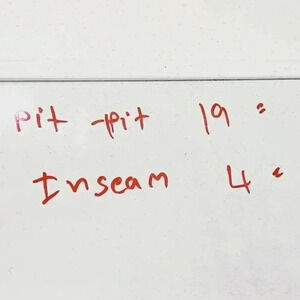 pit -pit 19 "
Inseam 4 "